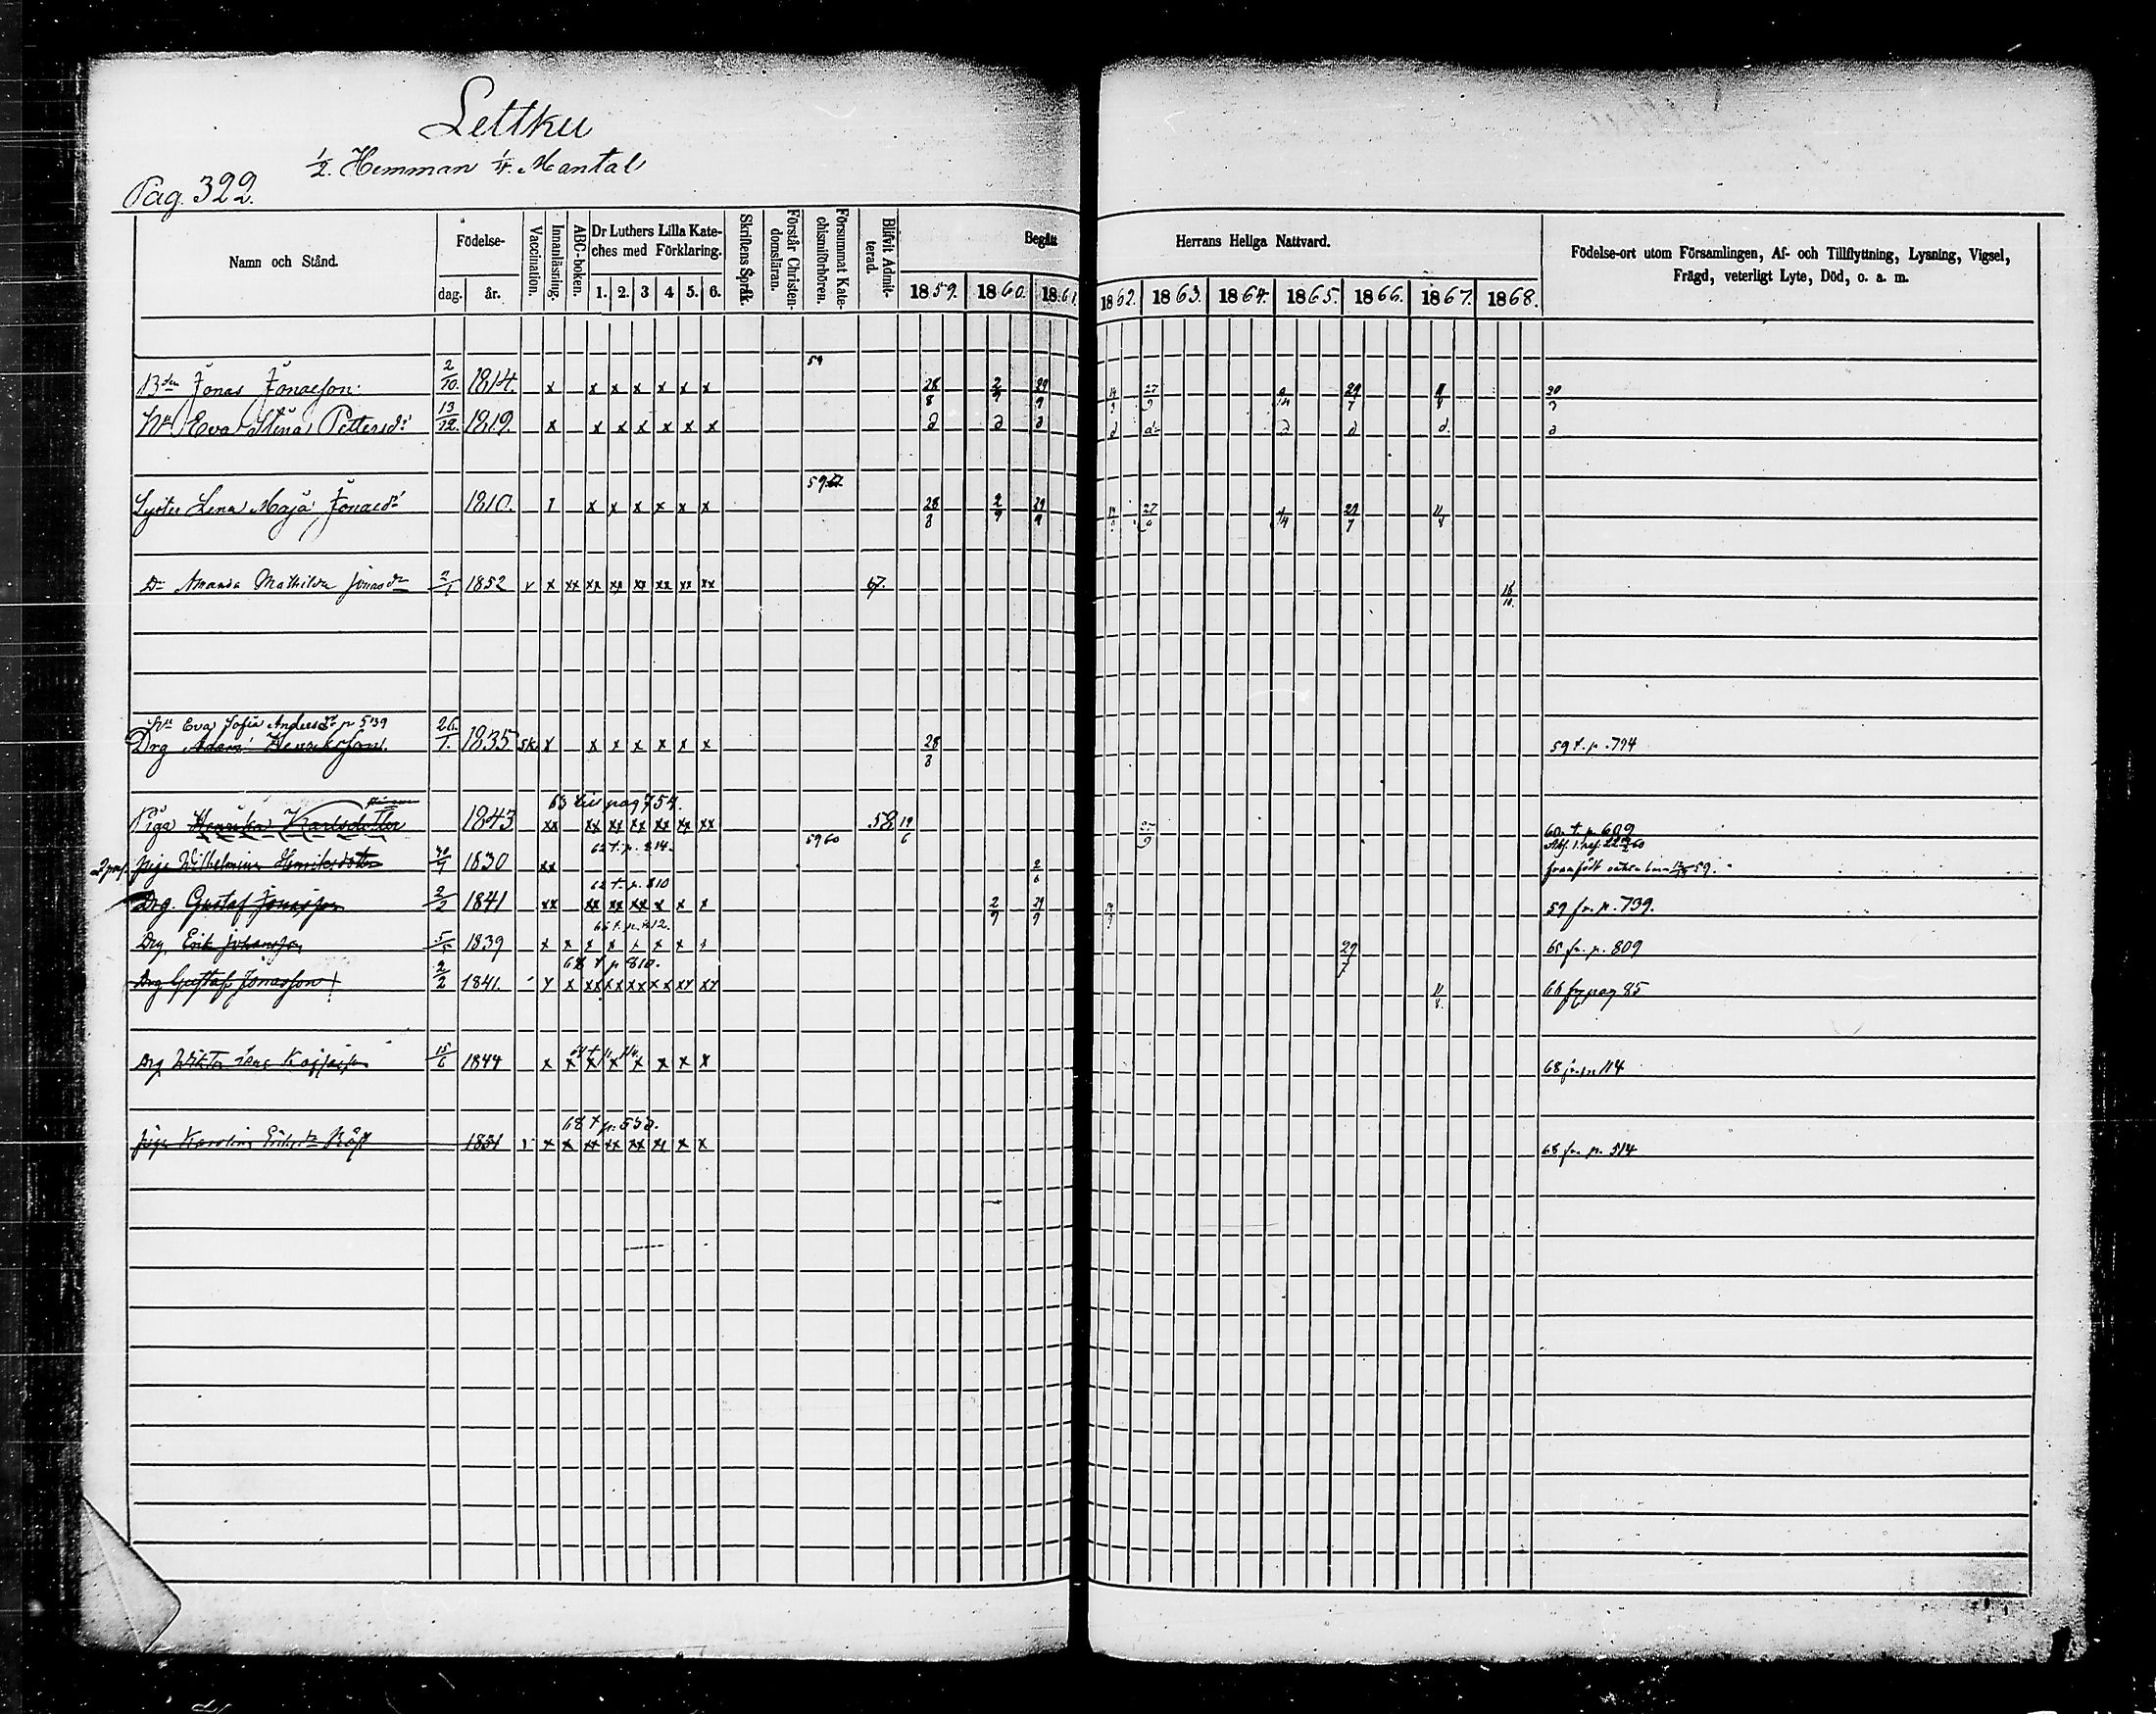 Lettku
1/2. Hemman 1/4. Mantal
Pag. 322.
Namn och Stånd. Födelse- dag. år. Vaccination. Innanläsning. ABC-boken. Dr Luthers Lilla Kateches med Förklaring. 1. 2. 3 4 5. 6. Skriftens Språk. Förstår Christendomsläran. Försummat Katechismiförhören. Blifvit Admitterad. Begått Herrans Heliga Nattvard. 1859. 1860. 1861. 1862. 1863. 1864. 1865. 1866. 1867. 1868. Födelse-ort utom Församlingen, Af- och Tillflyttning, Lysning, Vigsel, Frägd, veterligt Lyte, Död, o. a. m.
59
Bdn Jonas Jonasson 2/10. 1814. x x x x x x x 28/8 2/9 29/9 27/9 29/7 30/9
Hu Eva Stina Pettersdr 13/12. 1819. x x x x x x x d d d d d d d d d
59 67
Syster Lena Maja Jonasdr 1810. 1 x x x x x x 28/8 2/9 29/9 27/9 29/7 11/8
Dr Amanda Mathilda Jonasdr 1852 v x xx xx xx xx xx xx xx 67. 18/10.
Hu Eva Sofia Andersdr p 539
Drg Adam Henriksson. 26/1. 1835 sk. x x x x x x x 28/8 59 t. p. 794
63 till pag 754.
Piga Henrika Karlsdotter 1843 xx xx xx xx xx xx xx 58 19/6 27/9 60. t. p. 609
62 t. p. 814. 59 60
Piga Wilhelmina Henriksdotter 1830 xx 2/6 framfödt oäkta barn 59.
62 t. p. 810
Drg. Gustaf Jonasson 2/2 1841 xx xx xx xx x x x 2/9 29/9 59 fr. p. 739.
66 t. p. 812.
Drg. Erik Johansson 5/5 1839 x x x x x x x x 29/7 65 fr. p. 809
68 t p 810.
Drg Gustaf Jonasson 2/2 1841. x x xx xx xx xx xx xx 11/8. 66 fr pag 85
Drg Viktor 15/6 1844 x x x x x x x x 68 fr. p 114
68 t p. 553.
Piga Karolina Eriksdr 1831 v x x xx xx xx xx x x 68 fr. p. 514